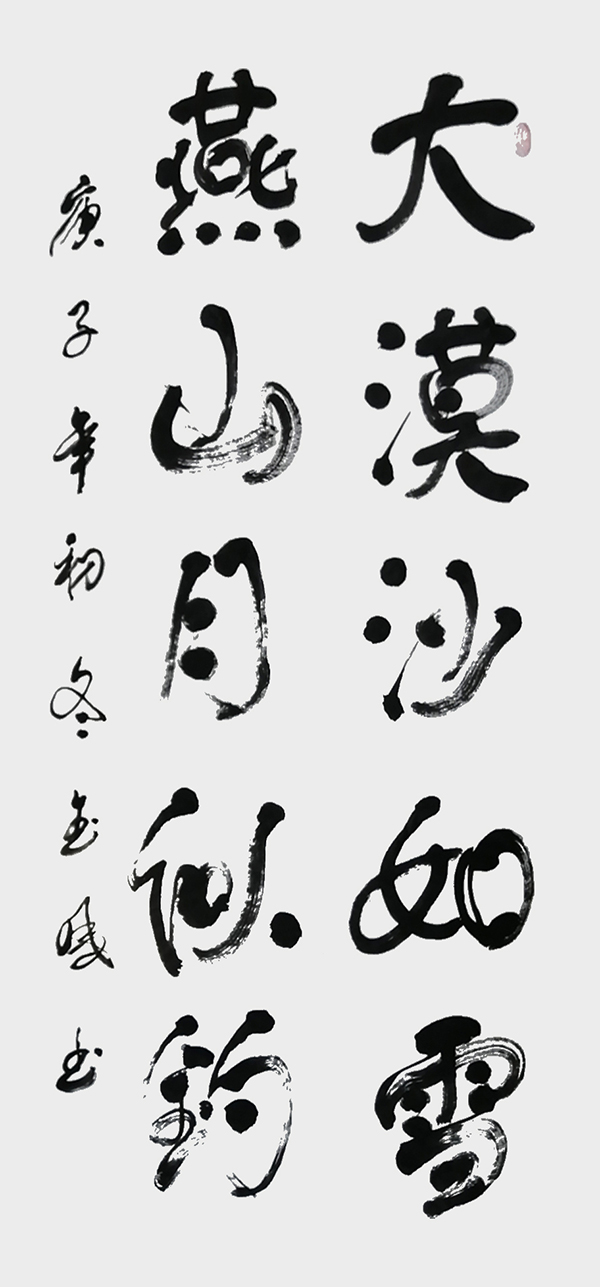 大漠沙如雪
燕山月似鈎
庚子年初冬金晟書